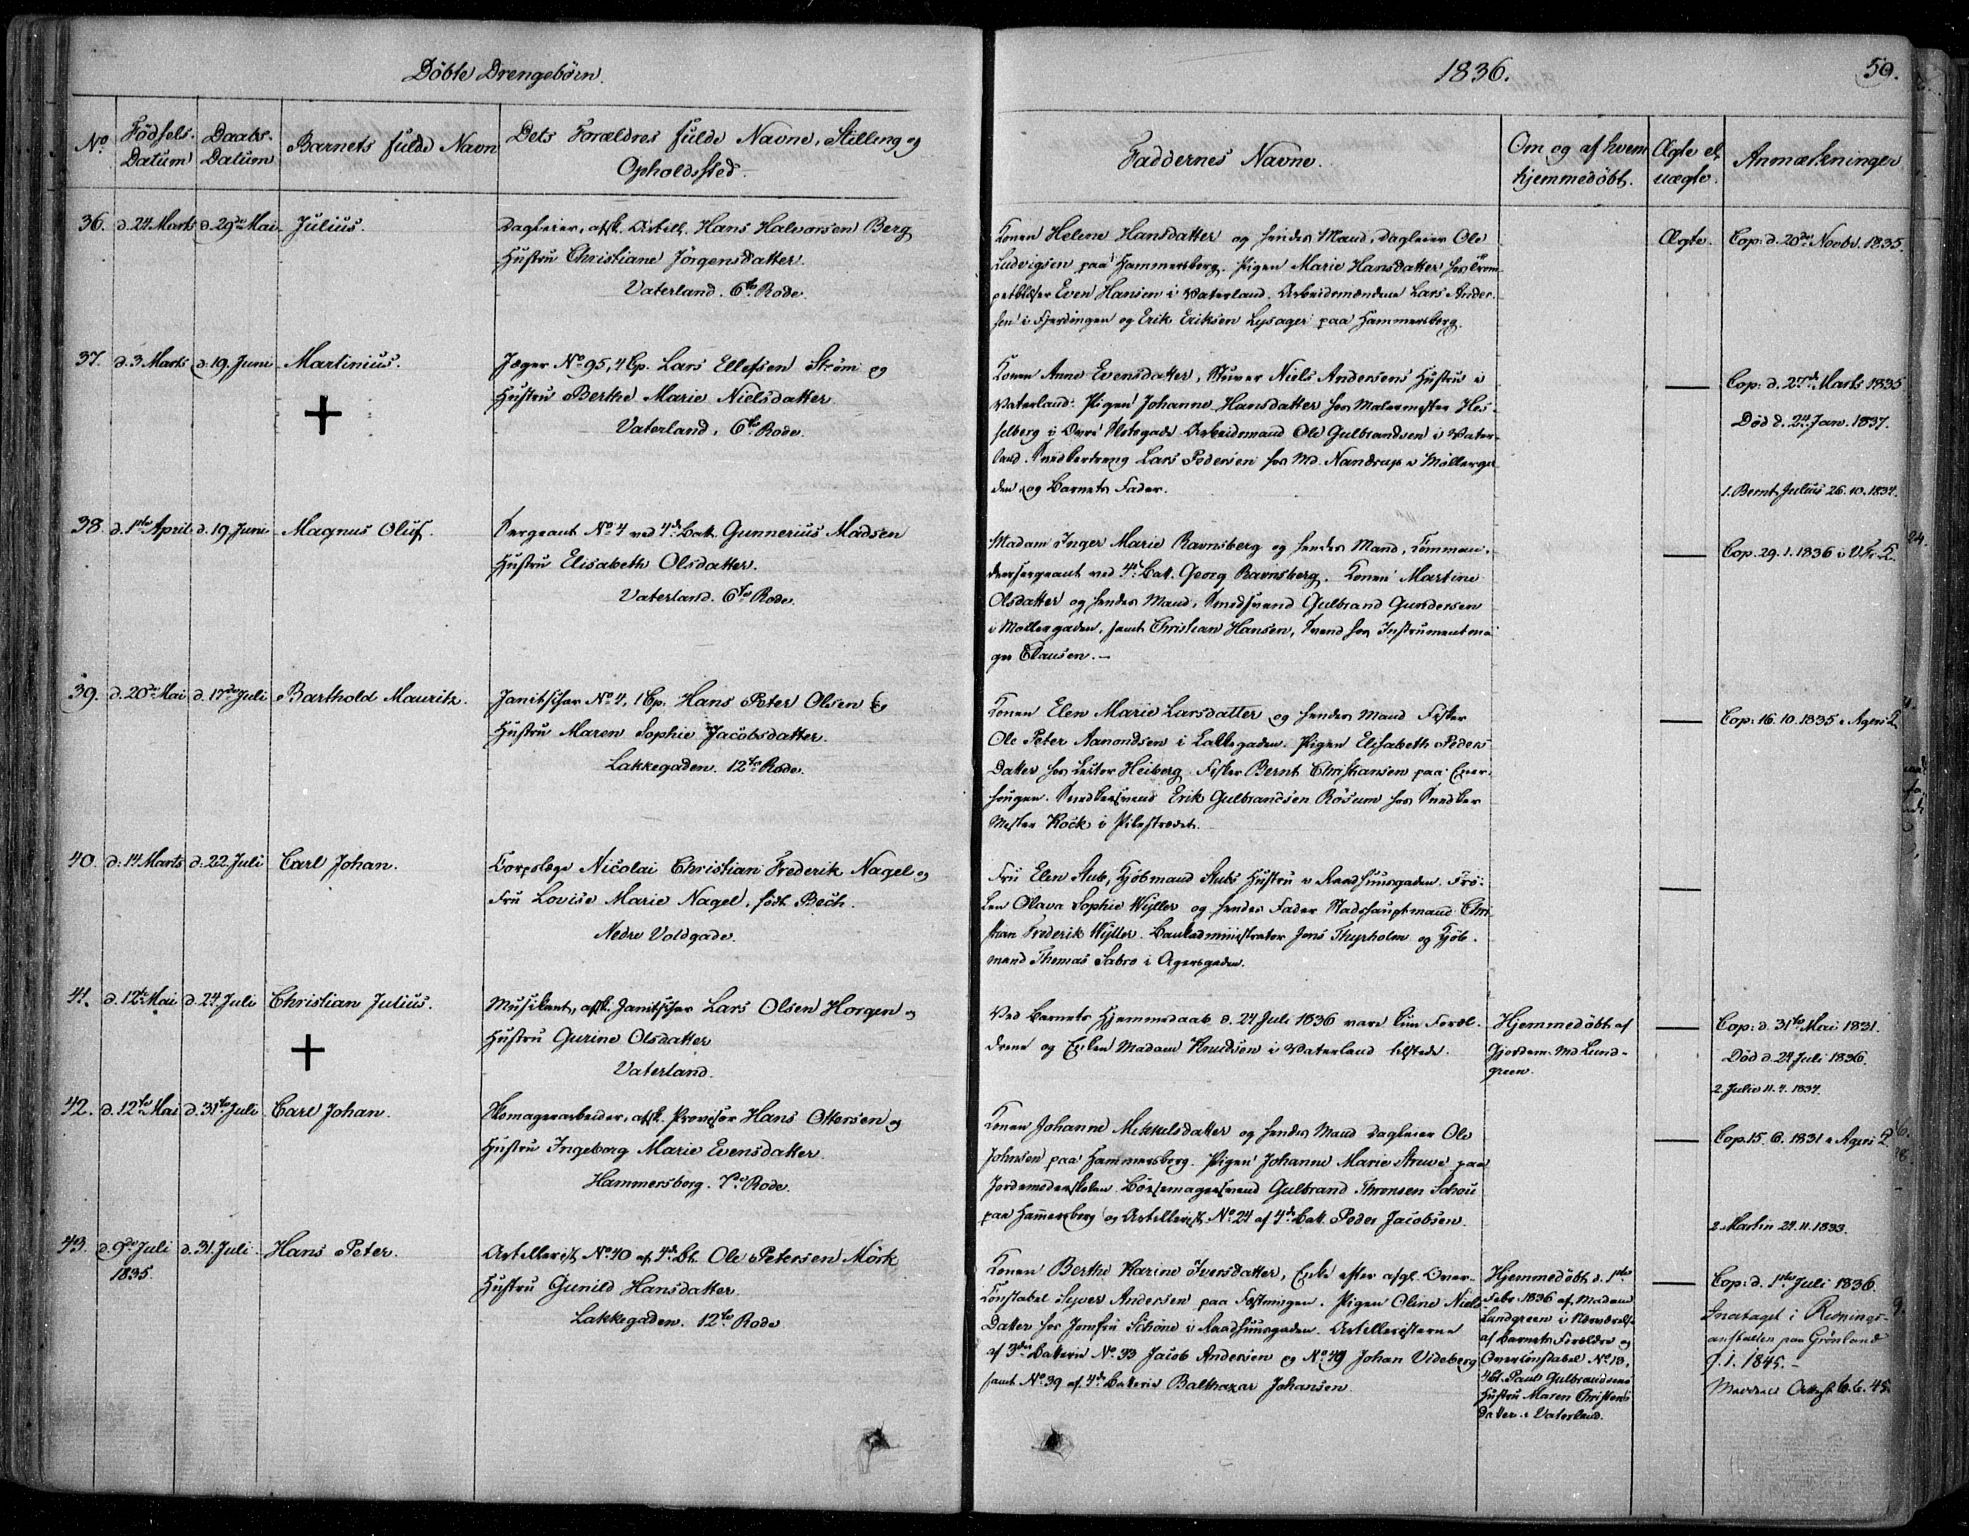 Döbte Drengebörn.
1836.
50.
No
Fødsels-
Datum
Daabs-
Datum
Barnets fulde Navn
Dets Forældres fulde Navne, Stilling og
Opholdssted.
Faddernes Navne.
Om og af hvem
hjemmedöbt.
Ægte el.
uægte.
Anmærkninger
36. d. 24 Marts d. 29de Mai Julius.
Dagleier, afsk. Artill. Hans Halvorsen Berg
Hustru Christiane Jörgensdatter.
Vaterland. 6te Rode.
Konen Helene Hansdatter og hendes Mand, Dagleier Ole
Ludvigsen paa Hammersborg. Pigen Marie Hansdatter hos Trom-
petblæser Even Hansen i Vaterland. Arbeidsmændene Lars Ander-
sen i Fjerdingen og Erik Eriksen Lysager paa Hammersborg.
Ægte.
Cop: d. 20de Novbr. 1835.
37. d. 3 Marts d. 19. Juni Martinius.
Jæger No 95, 4 Cp. Lars Ellefsen Ström og
Hustru Berthe Marie Nielsdatter
Vaterland, 6te Rode.
Konen Anne Evensdatter, Stuver Niels Andersens Hustru i
Vaterland. Pigen Johanne Hansdatter hos Malermester Hes-
selberg i Övre Slotsgade. Arbeidsmand Ole Gulbrandsen i Vater-
land. Snedkerdreng Lars Pedersen hos Md. Nandrup i Möllerga-
den og Barnets Fader.
Cop: d. 27de Marts 1835
Död d. 24. Jan. 1837.
1. Bernt Julius 26.10.1834.
38. d. 1ste April d. 19. Juni Magnus Oluf.
Sergeant No 4 ved 4de Batt. Gunnerius Madsen
Hustru Elisabeth Olsdatter.
Vaterland. 6te Rode.
Madam Inger Marie Ravnsberg og hendes Mand, Comman-
deersergeant ved 4de Batt. Georg Ravnsberg. Konen Martine
Olsdatter og hendes Mand, Smedsvend Gulbrand Gundersen
i Möllergaden, samt Christian Hansen, Svend hos Instrumentma-
ger Clausen. -
Cop. 29.1.1836 i V. Fr. K.
39. d. 20de Mai d. 17de Juli Barthold Mauritz.
Janitschar No 4, 1 Cp. Hans Peter Olsen og
Hustru Maren Sophie Jacobsdatter.
Lakkegaden. 12te Rode.
Konen Elen Marie Larsdatter og hendes Mand Fisker
Ole Peter Aamondsen i Lakkegaden. Pigen Elisabeth Peders-
datter hos Lector Heiberg. Fisker Bernt Christiansen paa Ener-
hougen. Snedkersvend Erik Gulbrandsen Rösum hos Snedker
Mester Kock i Pilestrædet.
Cop: 16.10.1835 i Agers K.
40. d. 14 Marts d. 22. Juli Carl Johan.
Corpslæge Nicolai Christian Frederik Nagel og
Fru Lovise Marie Nagel, född Bech.
Nedre Voldgade.
Fru Elen Stub, Kjöbmand Stubs Hustru i Raadhuusgaden. Frö-
ken Olava Sophie Wyller og hendes Fader Stadshauptmand Chri-
stian Frederik Wyller. Bankadministrator Jens Thyrholm og Kjöb-
mand Thomas Sabro i Agersgaden.
41. d. 12te Mai d. 24 Juli Christian Julius.
Musikant, afsk. Janitschar Lars Olsen Horgen og
Hustru Gurine Olsdatter
Vaterland.
Ved Barnets Hjemmedaab d. 24 Juli 1836 vare kun Foræl-
drene og Enken Madam Knudsen i Vaterland tilstede.
Hjemmedöbt af
Gjordem. Md Lund-
green.
Cop: d. 31te Mai 1831.
Död d. 24 Juli 1836.
2. Julie 11.7.1834.
42. d. 12te Mai d. 31te Juli Carl Johan.
Skomagerarbeider, afsk. Provisor Hans Ottersen og
Hustru Ingeborg Marie Evensdatter.
Hammersborg. 7de Rode.
Konen Johanne Mikkelsdatter og hendes Mand Dagleier Ole
Johnsen paa Hammersborg. Pigen Johanne Marie Struve paa
Jordemoderskolen. Börsemagersvend Gulbrand Thronsen Schou
paa Hammersborg og Artillerist No 24 af 4de Batt. Peder Jacobsen.
Cop. 15.6.1831 i Agers K.
2. Martin 29.11.1833.
43. d. 9de Juli d. 31. Juli. Hans Peter.
1835.
Artillerist No 40 af 4de Bt. Ole Petersen Mörk
Hustru Gunild Hansdatter.
Lakkegaden. 12te Rode
Konen Berthe Karine Iversdatter, Enke efter afgl. Over-
Constabel Syver Andersen paa Fæstningen. Pigen Oline Niels-
datter hos Jomfru Schöne i Raadhuusgaden. Artilleristerne
af 3die Batterie No 33 Jacob Andersen og No 49 Johan Videberg
samt No 39 af 4de Batterie Balthazar Johansen.
Hjemmedöbt d. 1ste
Febr. 1836 af Madam
Lundgreen i Nærværelse
af Barnets Forældre og
Overconstabel No 13,
4 Bt. Paul Gulbrandsens
Hustru Maren Christens-
datter i Vaterland.
Cop: d. 1ste Juli 1836.
Indtaget i Rednings-
anstalten paa Grönland
9.1.1845. -
Meddelt Attest 6.6.45.